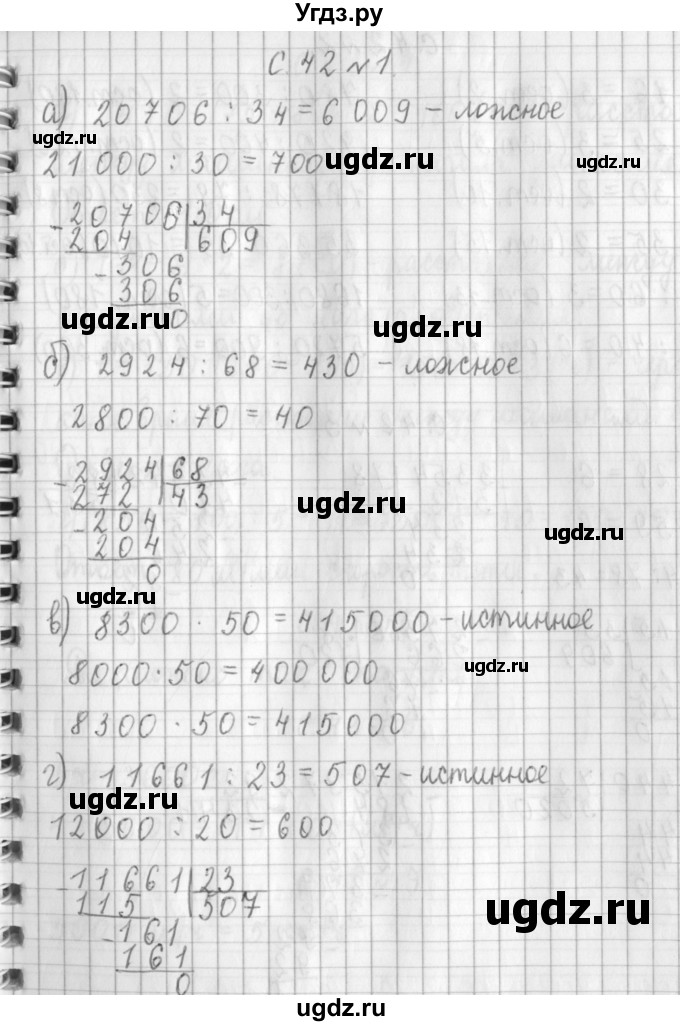 Угдз.ру
С. 42 №1.
а) 20706 : 34 = 6 009 – ложное
ugdz.ru
21 000 : 30 = 700 ugdz.ru ugdz.ru
- 20706 | 34
204 | 609
- 306
306
ugdz.ru 0 ugdz.ru
б) 2924 : 68 = 430 – ложное
2800 : 70 = 40
- 2924 | 68
272 | 43 ugdz.ru
- 204 ugdz.ru
204
0
ugdz.ru
в) 8300 · 50 = 415000 – истинное
8000 · 50 = 400 000 ugdz.ru
8300 · 50 = 415000
г) 11661 : 23 = 507 – истинное
ugdz.ru
12000 : 20 = 600
- 11661 | 23
115 | 507 ugdz.ru
- 161
161
0
ugdz.ru